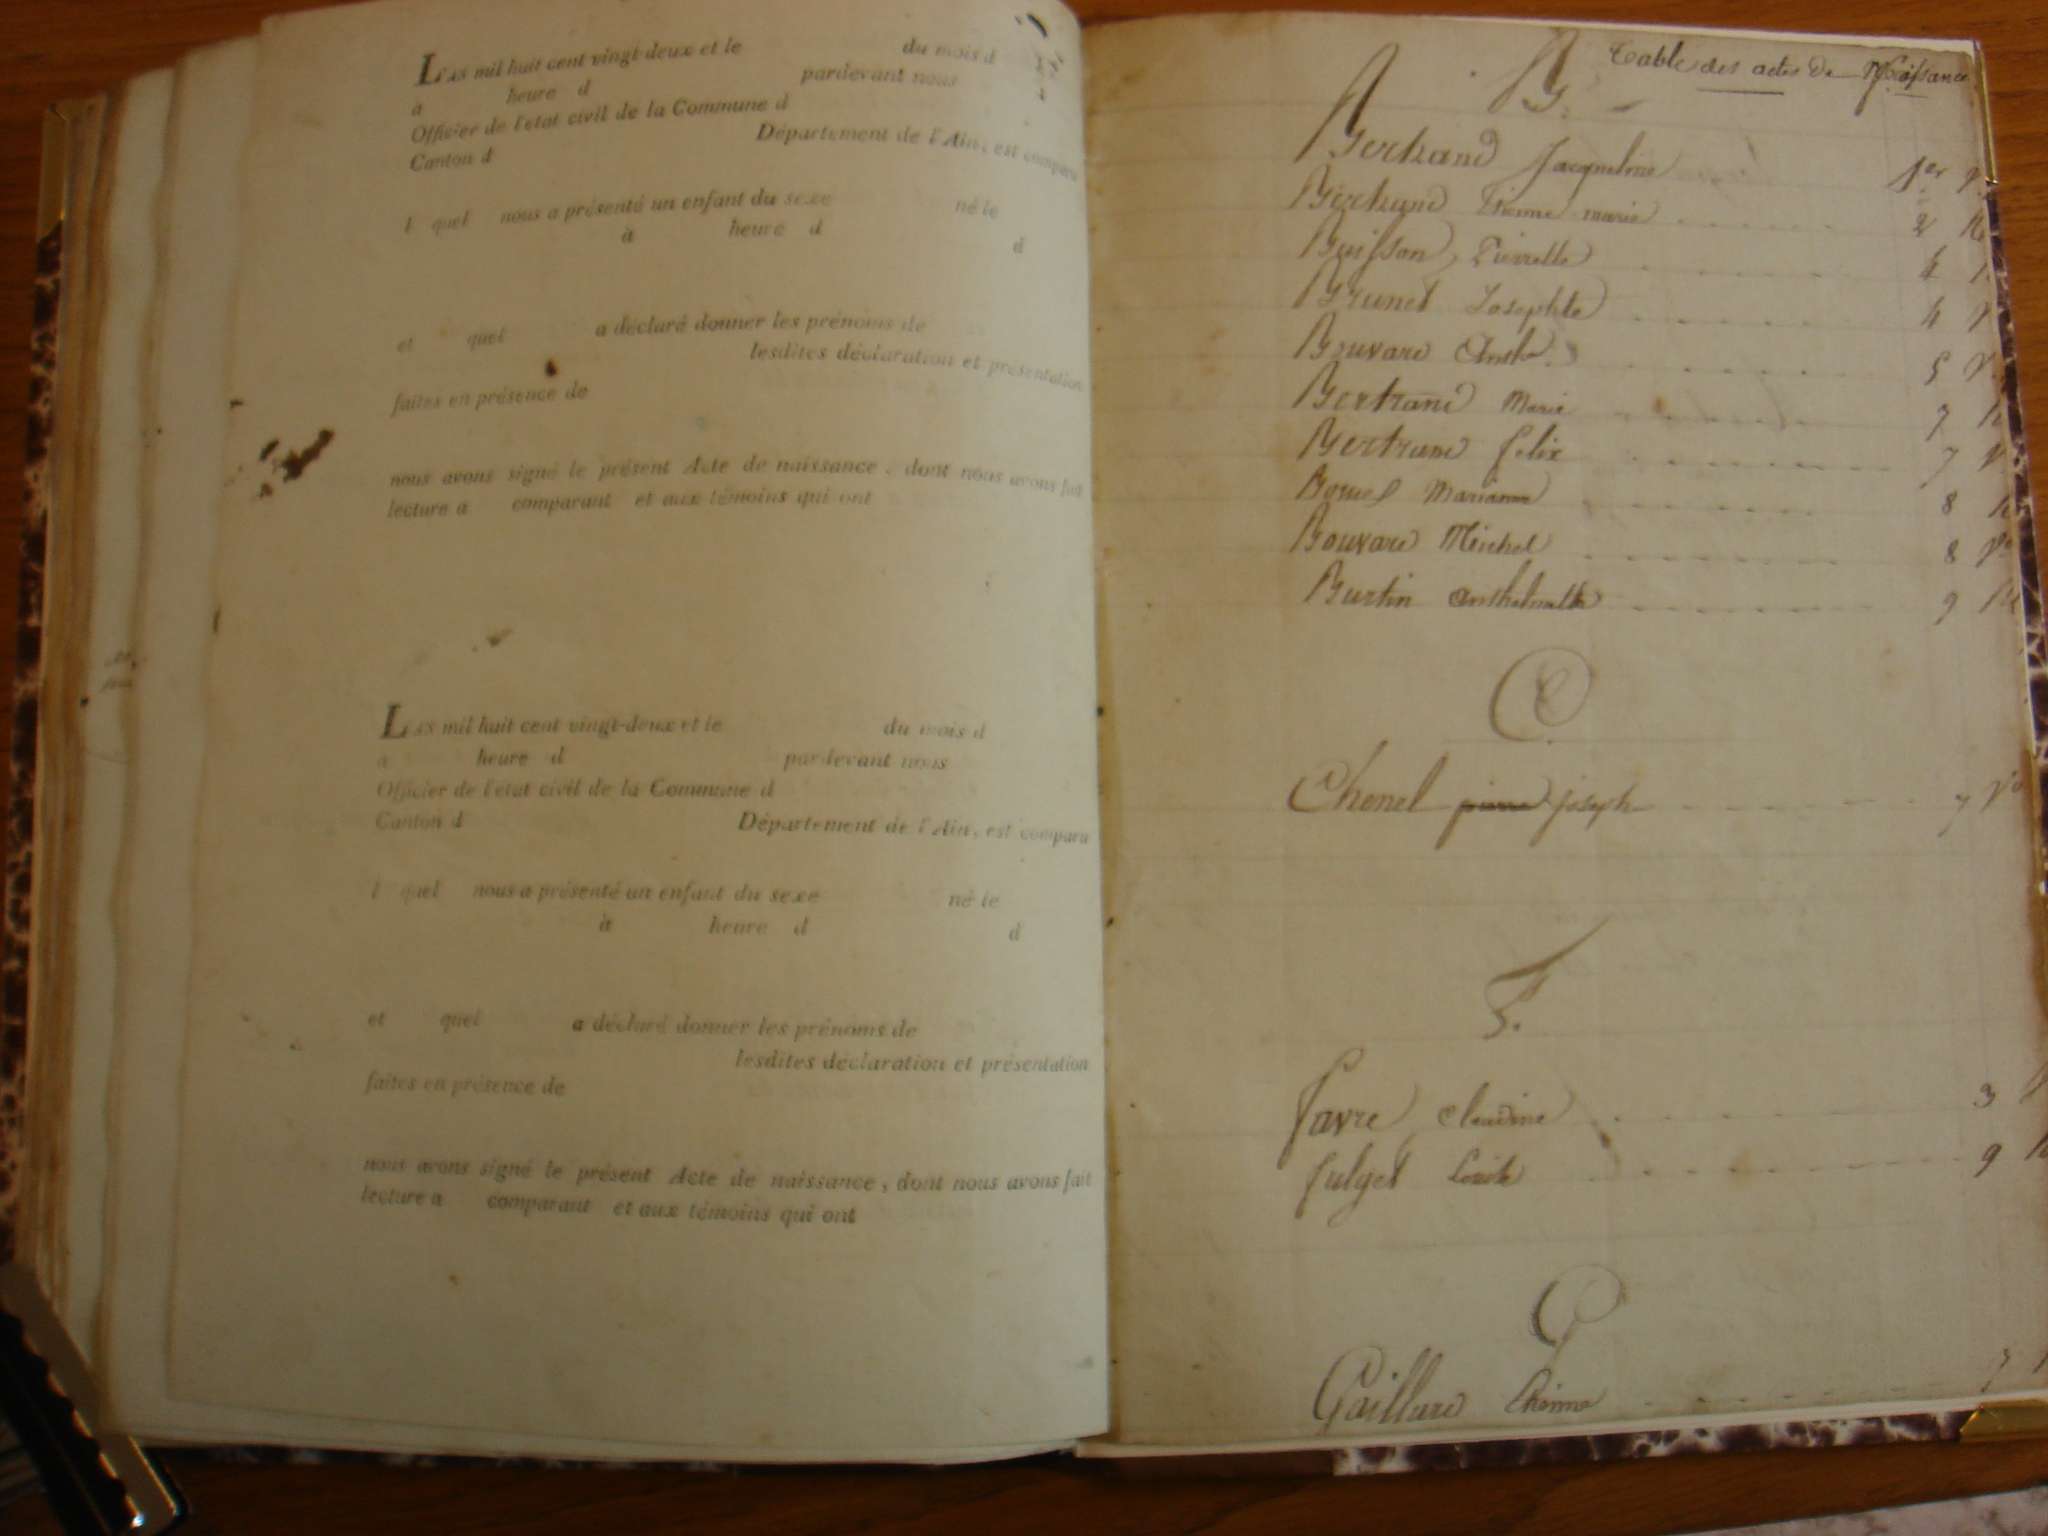 L'an mil huit cent vingt-deux et le du mois d
a heure d pardevant nous
Officier de l'etat civil de la Commune d
Canton d Département de l'Ain, est comparu
l quel nous a présenté un enfant du sexe né le
à heure d d
et quel a déclaré donner les prénoms de
lesdites déclaration et présentation
faites en présence de
nous avons signé le présent Acte de naissance, dont nous avons fait
lecture a comparant et aux témoins qui ont
L'an mil huit cent vingt-deux et le du mois d
a heure d pardevant nous
Officier de l'etat civil de la Commune d
Canton d Département de l'Ain, est comparu
l quel nous a présenté un enfant du sexe né le
à heure d d
et quel a déclaré donner les prénoms de
lesdites déclaration et présentation
faites en présence de
nous avons signé le présent Acte de naissance, dont nous avons fait
lecture a comparant et aux témoins qui ont
Table des actes de Naissance
B.
Bertrand Jacqueline 1er
Bertrand marie 2
Buisson Pierrette 4
Brunet Josephte 4
Bouvard Anth. 5
Bertrand Marie 7
Bertrand felix 7
Marianne 8
Bouvard Michel 8
Burtin anthelmette 9
C.
Chenel pierre joseph 7
F.
favre claudine 3
fulget 9
G
Gaillard